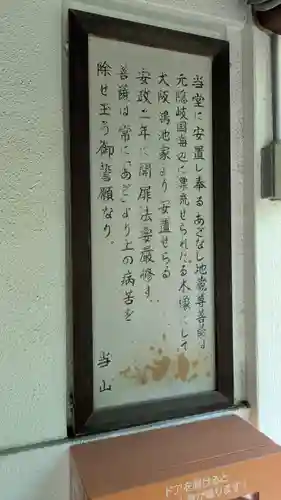 当堂に安置し奉るあごなし地蔵尊菩薩は
元隠岐国海辺に漂流せられたる木像にして
大阪鴻池家より安置せらる
安政二年に開扉法要厳修す
菩薩は常に「あご」より上の病苦を
除せ玉う御誓願なり
当山
ドアを開けると
ります!